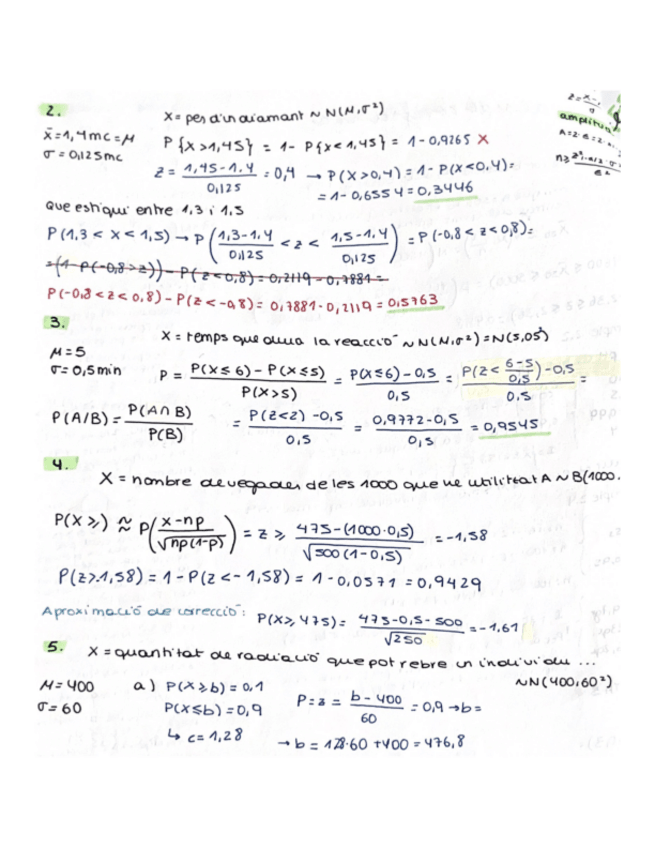 2.
X = pes d'un diamant ~ N(M,σ²)
x̄=1,4mc=M
σ=0,125mc
P{X>1,45} = 1- P{x<1,45} = 1-0,9265 X
z = (1,45-1.4)/0,125 = 0,4 → P(X>0,4)=1-P(X<0,4)=
= 1-0,6554=0,3446
amplitu
Que estigui entre 1,3 i 1,5
P(1,3 < X < 1,5) → P((1,3-1.4)/0,125 < z < (1,5-1.4)/0,125) = P(-0,8 < z < 0,8)=
=(1-P(-0,8>z))-P(z<0,8)=0,2119-0,7881=
P(-0,8<z<0,8)-P(z<-0,8)=0,7881-0,2119=0,5763
3.
X = temps que dura la reacció ~N(M,σ²)=N(5,05²)
M=5
σ=0,5min
P = (P(X≤6)-P(X≤5))/P(X>5) = (P(X≤6)-0,5)/0,5 = (P(Z<(6-5)/0,5)-0,5)/0,5 =
P(A/B)=P(A∩B)/P(B)
= (P(Z<2)-0,5)/0,5 = (0,9772-0,5)/0,5 = 0,9545
4.
X = nombre de vegades de les 1000 que ve utilitzat A ~ B(1000.
P(X≥) ≈ P((x-np)/√np(1-p)) = z ≥ (475-(1000·0,5))/√500(1-0,5) = -1,58
P(z>1,58) = 1-P(z<-1,58) = 1-0,0571 = 0,9429
Aproximació de correcció: P(X≥475)= (475-0,5-500)/√250 = -1,61
5.
X = quantitat de radiació que pot rebre un individu ...
~N(400,60²)
M=400
σ=60
a) P(X≥b)=0,1
P(X≤b)=0,9
↳ c=1,28
P=z = (b-400)/60 = 0,9→b=
→ b = 1,28·60+400 = 476,8